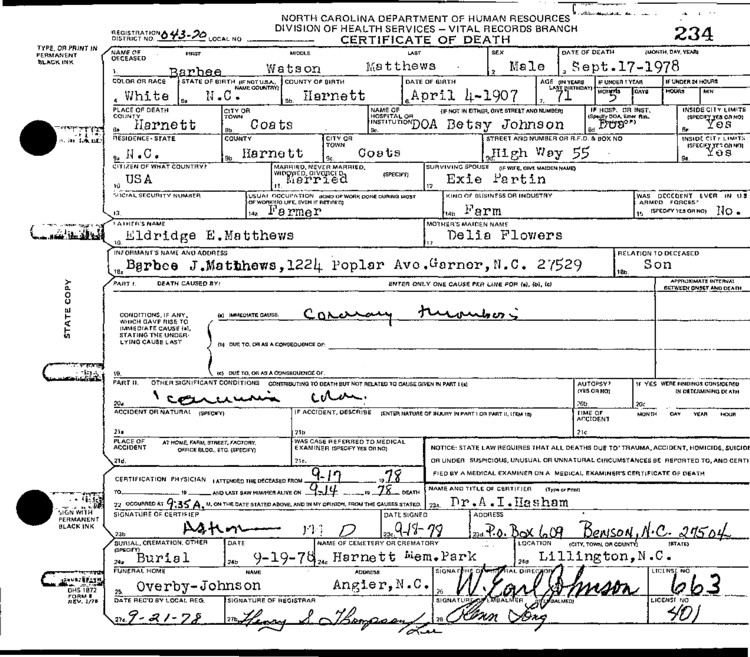 NORTH CAROLINA DEPARTMENT OF HUMAN RESOURCES
DIVISION OF HEALTH SERVICES – VITAL RECORDS BRANCH
CERTIFICATE OF DEATH
234
REGISTRATION DISTRICT NO. 043-20 LOCAL NO.
TYPE, OR PRINT IN PERMANENT BLACK INK
NAME OF DECEASED FIRST MIDDLE LAST SEX DATE OF DEATH (MONTH, DAY, YEAR)
1. Barbee Watson Matthews 2. Male 3. Sept.17-1978
COLOR OR RACE STATE OF BIRTH (IF NOT U.S.A., NAME COUNTRY) COUNTY OF BIRTH DATE OF BIRTH AGE (IN YEARS LAST BIRTHDAY) IF UNDER 1 YEAR IF UNDER 24 HOURS
MONTHS DAYS HOURS MIN
4. White 5a. N.C. 5b. Harnett 6. April 4-1907 7. 71 5
PLACE OF DEATH COUNTY CITY OR TOWN NAME OF HOSPITAL OR INSTITUTION (IF NOT IN EITHER, GIVE STREET AND NUMBER) IF HOSP. OR INST. INSIDE CITY LIMITS (SPECIFY YES OR NO)
8a. Harnett 8b. Coats 8c. DOA Betsy Johnson 8d. 8e. Yes
RESIDENCE-STATE COUNTY CITY OR TOWN STREET AND NUMBER OR R.F.D. & BOX NO INSIDE CITY LIMITS (SPECIFY YES OR NO)
9a. N.C. 9b. Harnett 9c. Coats 9d. High Way 55 9e. Yes
CITIZEN OF WHAT COUNTRY? MARRIED, NEVER MARRIED, WIDOWED, DIVORCED (SPECIFY) SURVIVING SPOUSE (IF WIFE, GIVE MAIDEN NAME)
10. USA 11. Married 12. Exie Partin
SOCIAL SECURITY NUMBER USUAL OCCUPATION (KIND OF WORK DONE DURING MOST OF WORKING LIFE, EVEN IF RETIRED) KIND OF BUSINESS OR INDUSTRY WAS DECEDENT EVER IN U.S. ARMED FORCES?
13. 14a. Farmer 14b. Farm 15. (SPECIFY YES OR NO) No.
FATHER'S NAME MOTHER'S MAIDEN NAME
16. Eldridge E.Matthews 17. Delia Flowers
INFORMANT'S NAME AND ADDRESS RELATION TO DECEASED
18a. Barbee J.Matthews,1224 Poplar Ave.Garner,N.C. 27529 18b. Son
PART I. DEATH CAUSED BY: ENTER ONLY ONE CAUSE PER LINE FOR (a), (b), (c) APPROXIMATE INTERVAL BETWEEN ONSET AND DEATH
CONDITIONS, IF ANY, WHICH GAVE RISE TO IMMEDIATE CAUSE (a), STATING THE UNDERLYING CAUSE LAST
(a) IMMEDIATE CAUSE: Coronary thrombosis
(b) DUE TO, OR AS A CONSEQUENCE OF:
19. (c) DUE TO, OR AS A CONSEQUENCE OF:
PART II. OTHER SIGNIFICANT CONDITIONS CONTRIBUTING TO DEATH BUT NOT RELATED TO CAUSE GIVEN IN PART I (a) AUTOPSY? (YES OR NO) IF YES WERE FINDINGS CONSIDERED IN DETERMINING DEATH
20a. carcinoma colon. 20b. 20c.
ACCIDENT OR NATURAL (SPECIFY) IF ACCIDENT, DESCRIBE (ENTER NATURE OF INJURY IN PART I OR PART II, ITEM 18) TIME OF ACCIDENT MONTH DAY YEAR HOUR
21a. 21b. 21c.
PLACE OF ACCIDENT AT HOME, FARM, STREET, FACTORY, OFFICE BLDG., ETC. (SPECIFY) WAS CASE REFERRED TO MEDICAL EXAMINER (SPECIFY YES OR NO)
21d. 21e.
NOTICE: STATE LAW REQUIRES THAT ALL DEATHS DUE TO TRAUMA, ACCIDENT, HOMICIDE, SUICIDE
OR UNDER SUSPICIOUS, UNUSUAL OR UNNATURAL CIRCUMSTANCES BE REPORTED TO, AND CERTI
FIED BY A MEDICAL EXAMINER ON A MEDICAL EXAMINER'S CERTIFICATE OF DEATH
CERTIFICATION PHYSICIAN I ATTENDED THE DECEASED FROM 9-17 78
TO 19 AND LAST SAW HIM/HER ALIVE ON 9-14 19 78 DEATH
22. OCCURRED AT 9:35 A. M, ON THE DATE STATED ABOVE, AND IN MY OPINION, FROM THE CAUSES STATED.
NAME AND TITLE OF CERTIFIER (Type or Print)
23a. Dr.A.I.Hasham
SIGNATURE OF CERTIFIER DATE SIGNED ADDRESS
23b. M D 23c. 9-18-78 23d. P.O. Box 609 BENSON, N.C. 27504
SIGN WITH PERMANENT BLACK INK
BURIAL, CREMATION, OTHER (SPECIFY) DATE NAME OF CEMETERY OR CREMATORY LOCATION (CITY, TOWN, OR COUNTY) (STATE)
24a. Burial 24b. 9-19-78 24c. Harnett Mem.Park 24d. Lillington,N.C.
FUNERAL HOME NAME ADDRESS SIGNATURE OF FUNERAL DIRECTOR LICENSE NO
25. Overby-Johnson Angier,N.C. 26. W. Earl Johnson 663
DATE REC'D BY LOCAL REG. SIGNATURE OF REGISTRAR SIGNATURE OF EMBALMER (IF EMBALMED) LICENSE NO
27a. 9-21-78 27b. Henry S. Thompson 28. Glenn Long 401
STATE COPY
DHS 1872
FORM 8
REV. 1/78